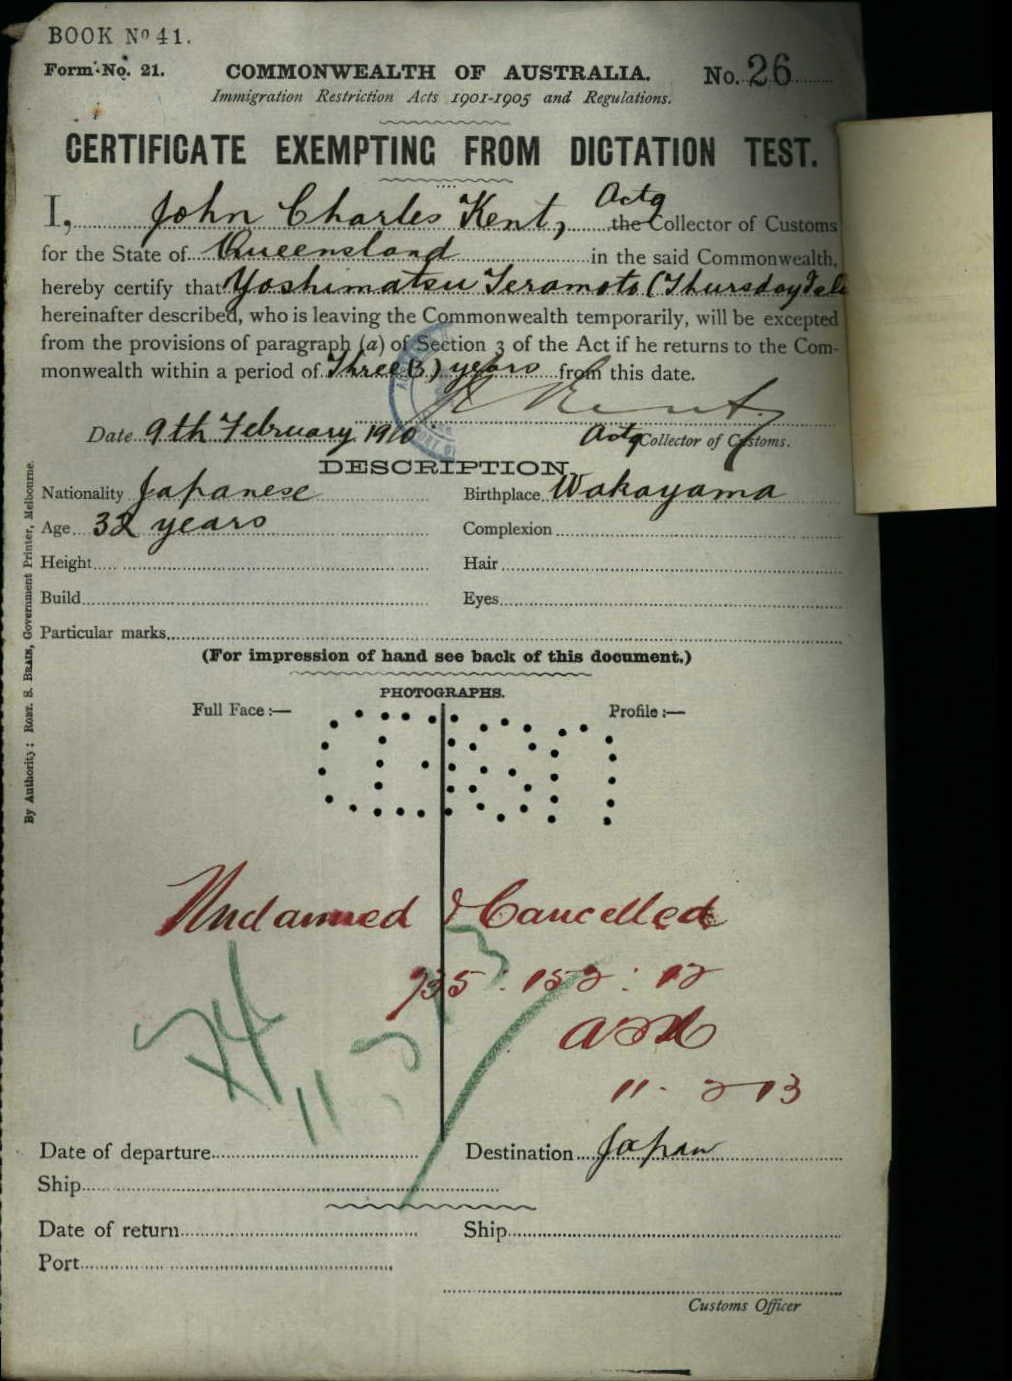 BOOK No 41.
Form No. 21.
COMMONWEALTH OF AUSTRALIA.
No. 26
Immigration Restriction Acts 1901-1905 and Regulations.
CERTIFICATE EXEMPTING FROM DICTATION TEST.
I, John Charles Kent, Actg the Collector of Customs
for the State of Queensland in the said Commonwealth,
hereby certify that Yoshimatsu Teramoto (Thursday Isle
hereinafter described, who is leaving the Commonwealth temporarily, will be excepted
from the provisions of paragraph (a) of Section 3 of the Act if he returns to the Com-
monwealth within a period of Three (3) years from this date.
J C Kent.
Date 9th February 1910 Actg Collector of Customs.
DESCRIPTION.
Nationality Japanese Birthplace Wakayama
Age 32 years Complexion
Height Hair
Build Eyes
Particular marks
(For impression of hand see back of this document.)
PHOTOGRAPHS.
Full Face :— Profile :—
Unclaimed & Cancelled
735 : 152 : 12
11 - 2 13
Date of departure Destination Japan
Ship
Date of return Ship
Port
Customs Officer
By Authority : ROBT. S. BRAIN, Government Printer, Melbourne.